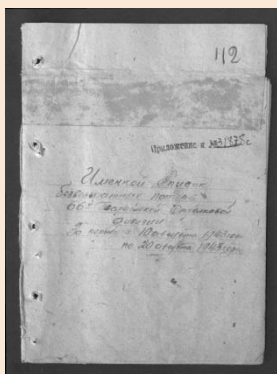 112
Приложение к № 31878 с
Именной Список
безвозвратных потерь
66й Гвардейской Стрелковой
дивизии
За период с 10 августа 1943 года
по 20 августа 1943 года